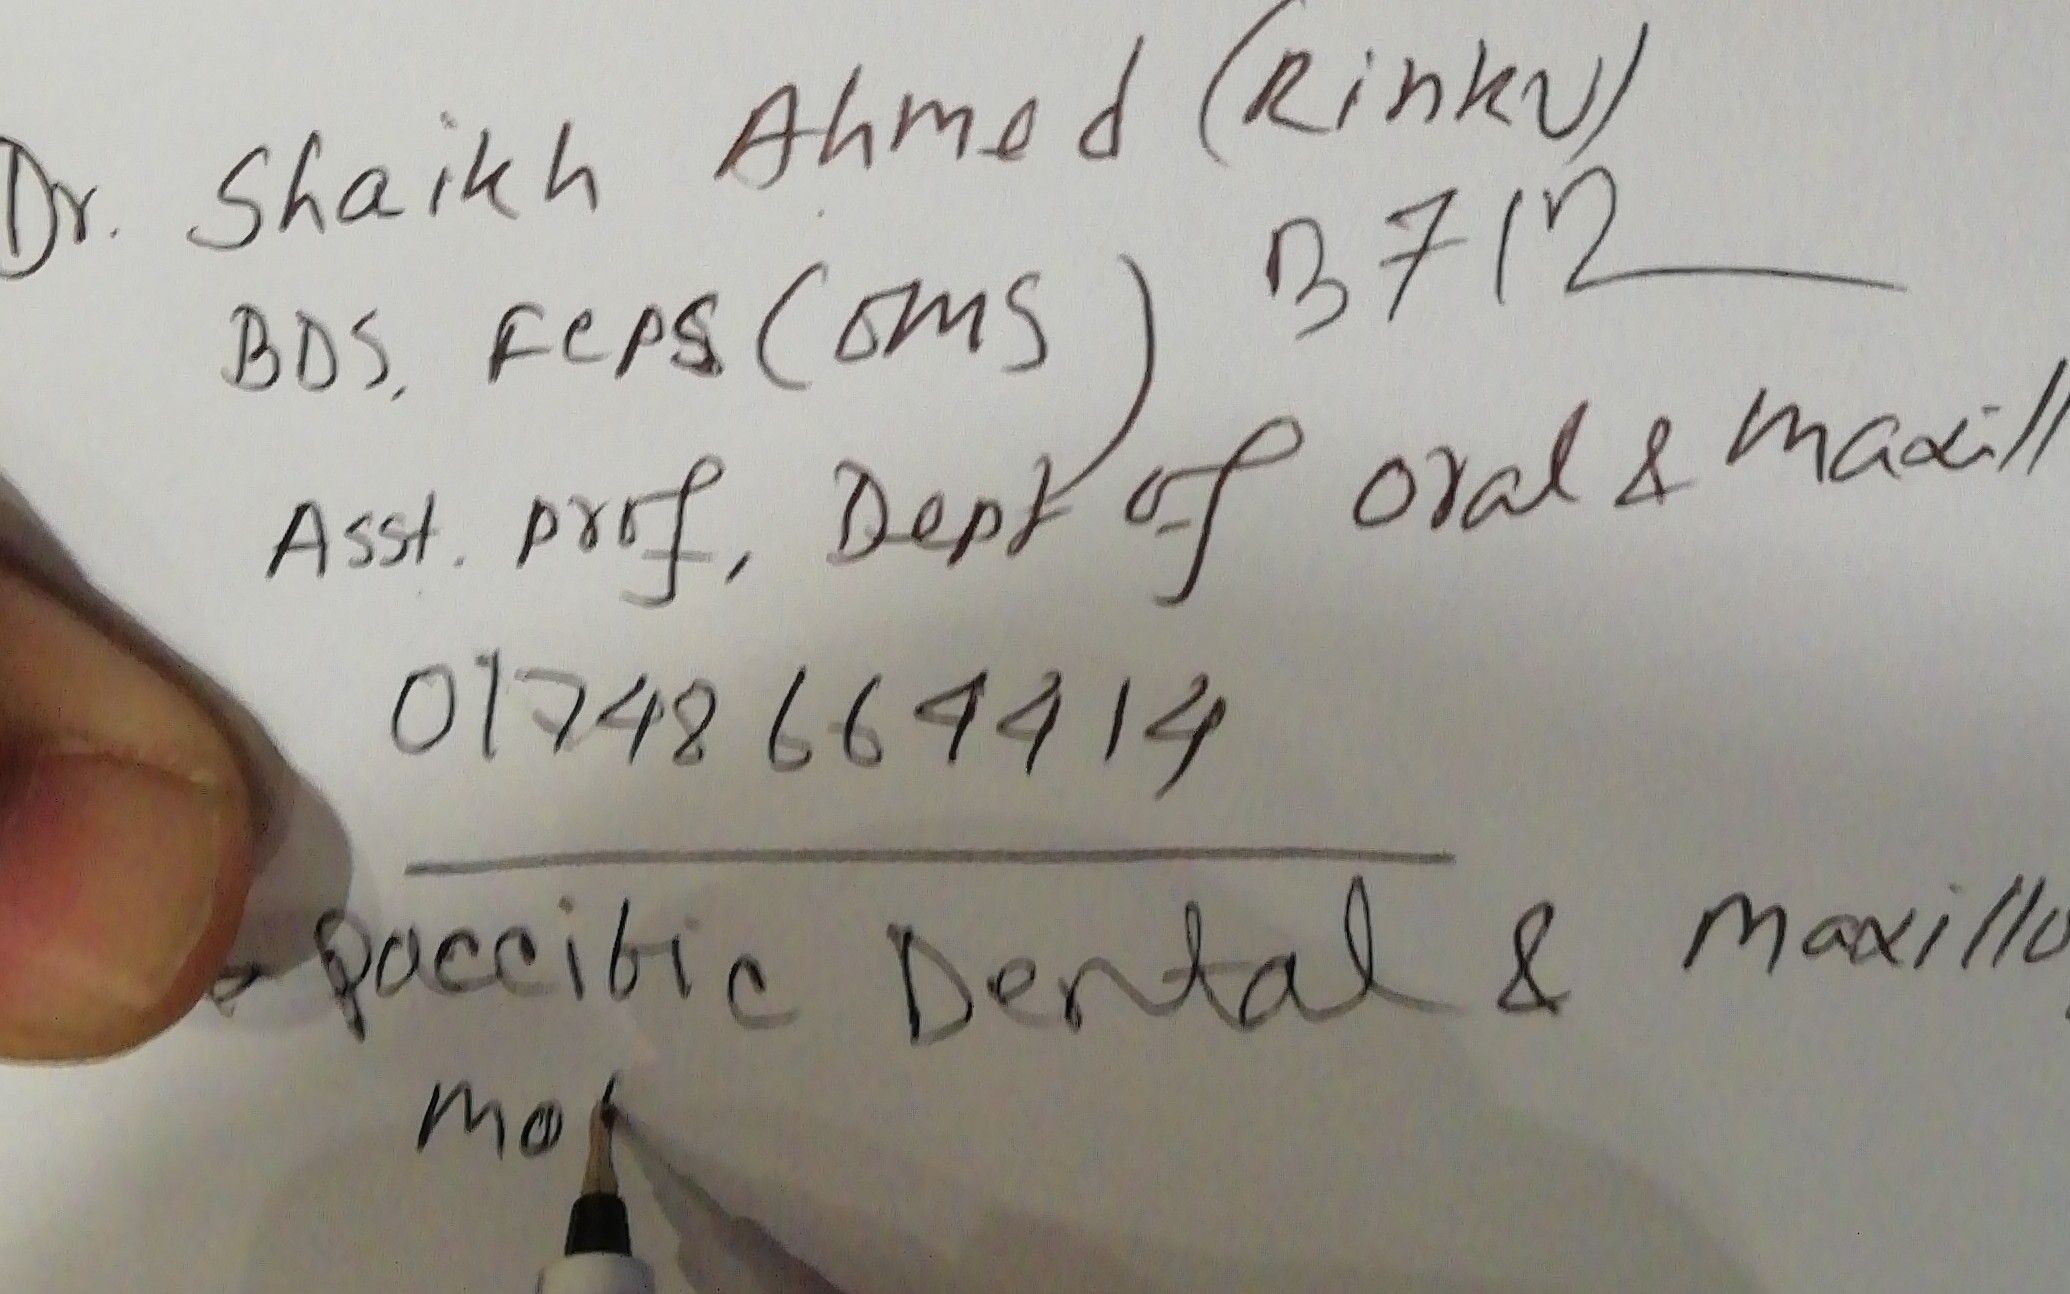 Dr. Shaikh Ahmed (Rinku)
B712
BDS, FCPS (OMS)
Asst. prof, Dept of oral & Maxill
01748664414
Paccific Dental & Maxillo
Mo